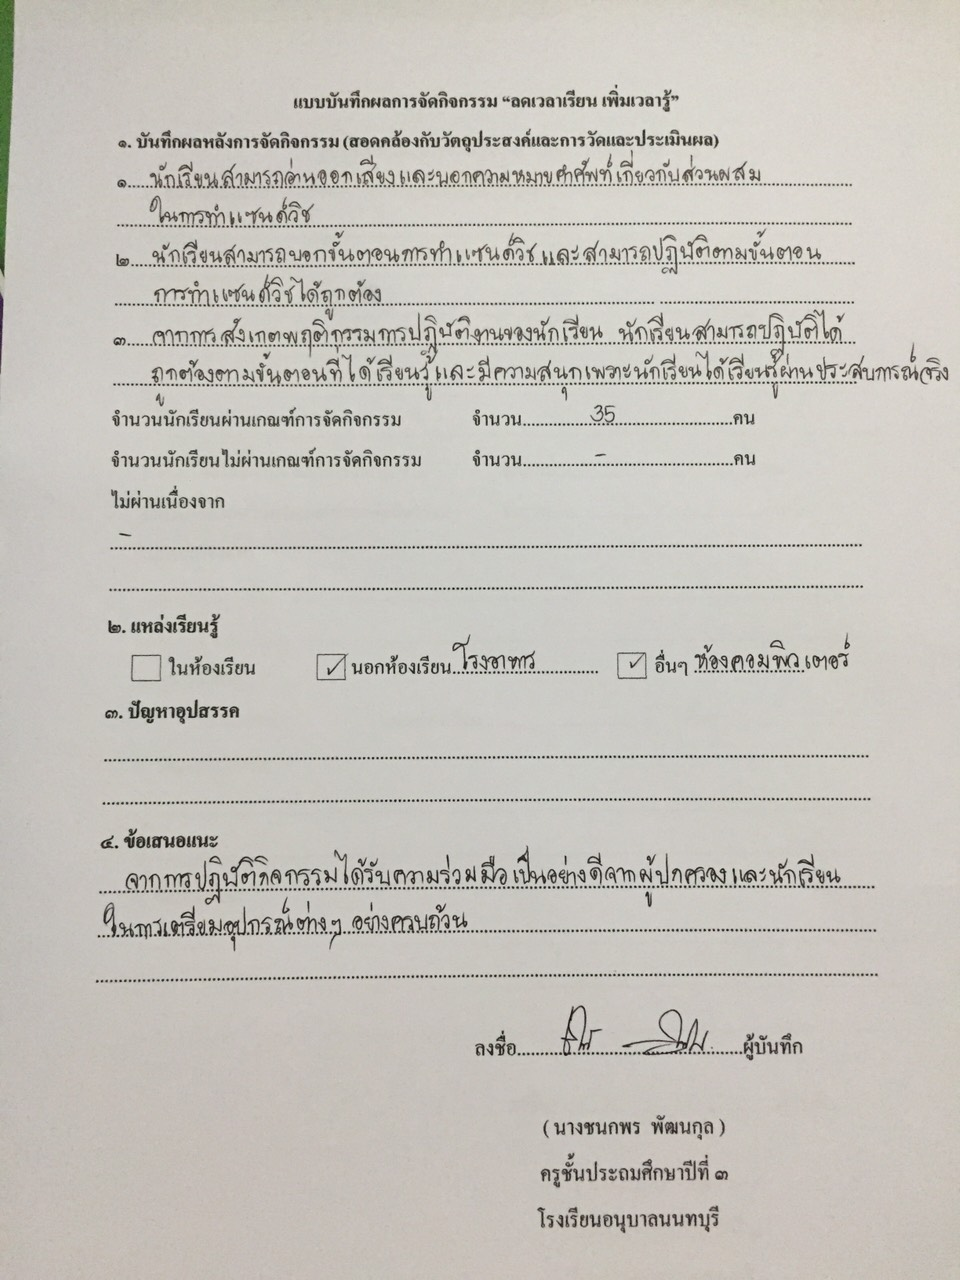 แบบบันทึกผลการจัดกิจกรรม “ลดเวลาเรียน เพิ่มเวลารู้”
๑. บันทึกผลหลังการจัดกิจกรรม (สอดคล้องกับวัตถุประสงค์และการวัดและประเมินผล)
๑. นักเรียนสามารถอ่านออกเสียงและบอกความหมายคำศัพท์เกี่ยวกับส่วนผสม
ในการทำแซนด์วิช
๒. นักเรียนสามารถบอกขั้นตอนการทำแซนด์วิชและสามารถปฏิบัติตามขั้นตอน
การทำแซนด์วิชได้ถูกต้อง
๓. จากการสังเกตพฤติกรรมการปฏิบัติงานของนักเรียน นักเรียนสามารถปฏิบัติได้
ถูกต้องตามขั้นตอนที่ได้เรียนรู้และมีความสนุกเพราะนักเรียนได้เรียนรู้ผ่านประสบการณ์จริง
จำนวนนักเรียนผ่านเกณฑ์การจัดกิจกรรม จำนวน 35 คน
จำนวนนักเรียนไม่ผ่านเกณฑ์การจัดกิจกรรม จำนวน - คน
ไม่ผ่านเนื่องจาก
-
๒. แหล่งเรียนรู้
ในห้องเรียน ✓ นอกห้องเรียน โรงอาหาร ✓ อื่นๆ ห้องคอมพิวเตอร์
๓. ปัญหาอุปสรรค
๔. ข้อเสนอแนะ
จากการปฏิบัติกิจกรรมได้รับความร่วมมือเป็นอย่างดีจากผู้ปกครองและนักเรียน
ในการเตรียมอุปกรณ์ต่างๆ อย่างครบถ้วน
ลงชื่อ ผู้บันทึก
(นางชนกพร พัฒนกุล)
ครูชั้นประถมศึกษาปีที่ ๓
โรงเรียนอนุบาลนนทบุรี